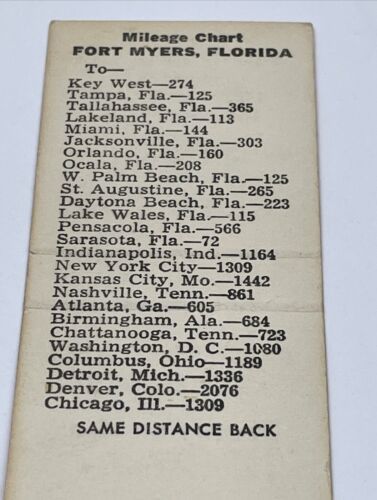 Mileage Chart
FORT MYERS, FLORIDA
To—
Key West—274
Tampa, Fla.—125
Tallahassee, Fla.—365
Lakeland, Fla.—113
Miami, Fla.—144
Jacksonville, Fla.—303
Orlando, Fla.—160
Ocala, Fla.—208
W. Palm Beach, Fla.—125
St. Augustine, Fla.—265
Daytona Beach, Fla.—223
Lake Wales, Fla.—115
Pensacola, Fla.—566
Sarasota, Fla.—72
Indianapolis, Ind.—1164
New York City—1309
Kansas City, Mo.—1442
Nashville, Tenn.—861
Atlanta, Ga.—605
Birmingham, Ala.—684
Chattanooga, Tenn.—723
Washington, D. C.—1080
Columbus, Ohio—1189
Detroit, Mich.—1336
Denver, Colo.—2076
Chicago, Ill.—1309
SAME DISTANCE BACK